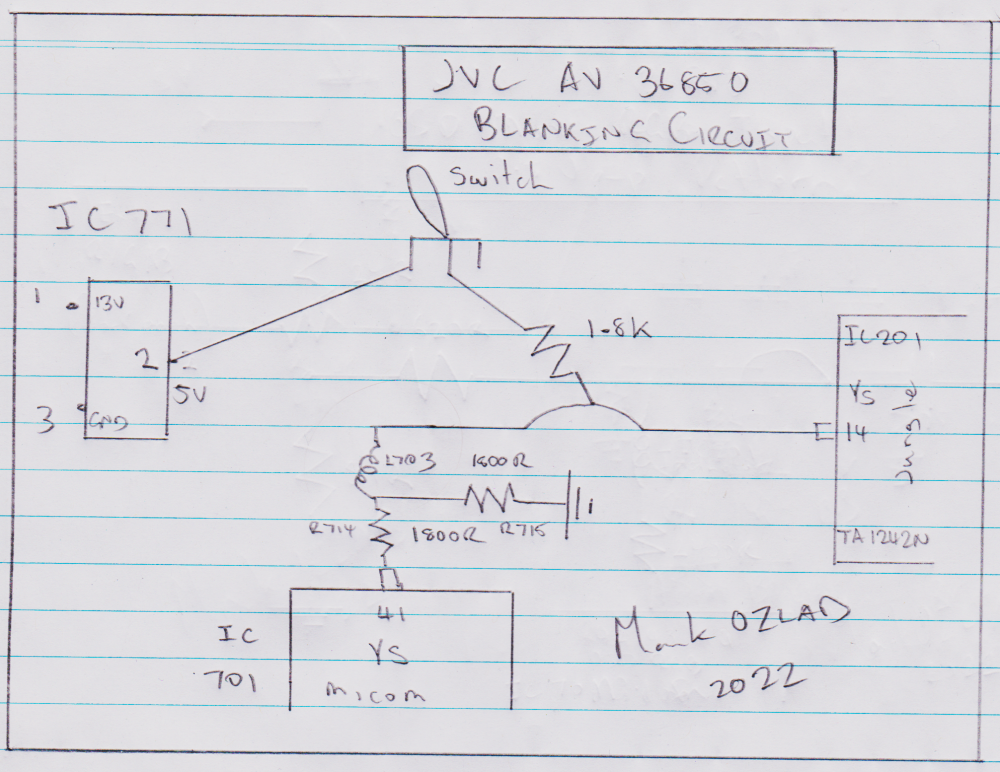 JVC AV 36850
BLANKING CIRCUIT
Switch
IC 771
1
13V
2
5V
3
GND
1.8K
IC201
YS
14
Jungle
TA1242N
L703
1800R
R714
1800R
R715
41
YS
micom
IC
701
Mark OZLAD
2022